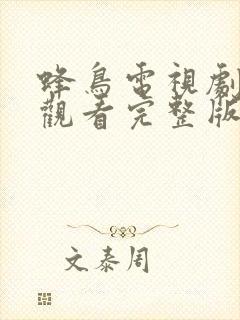 蜂鳥電視劇
觀看完整版
文泰周